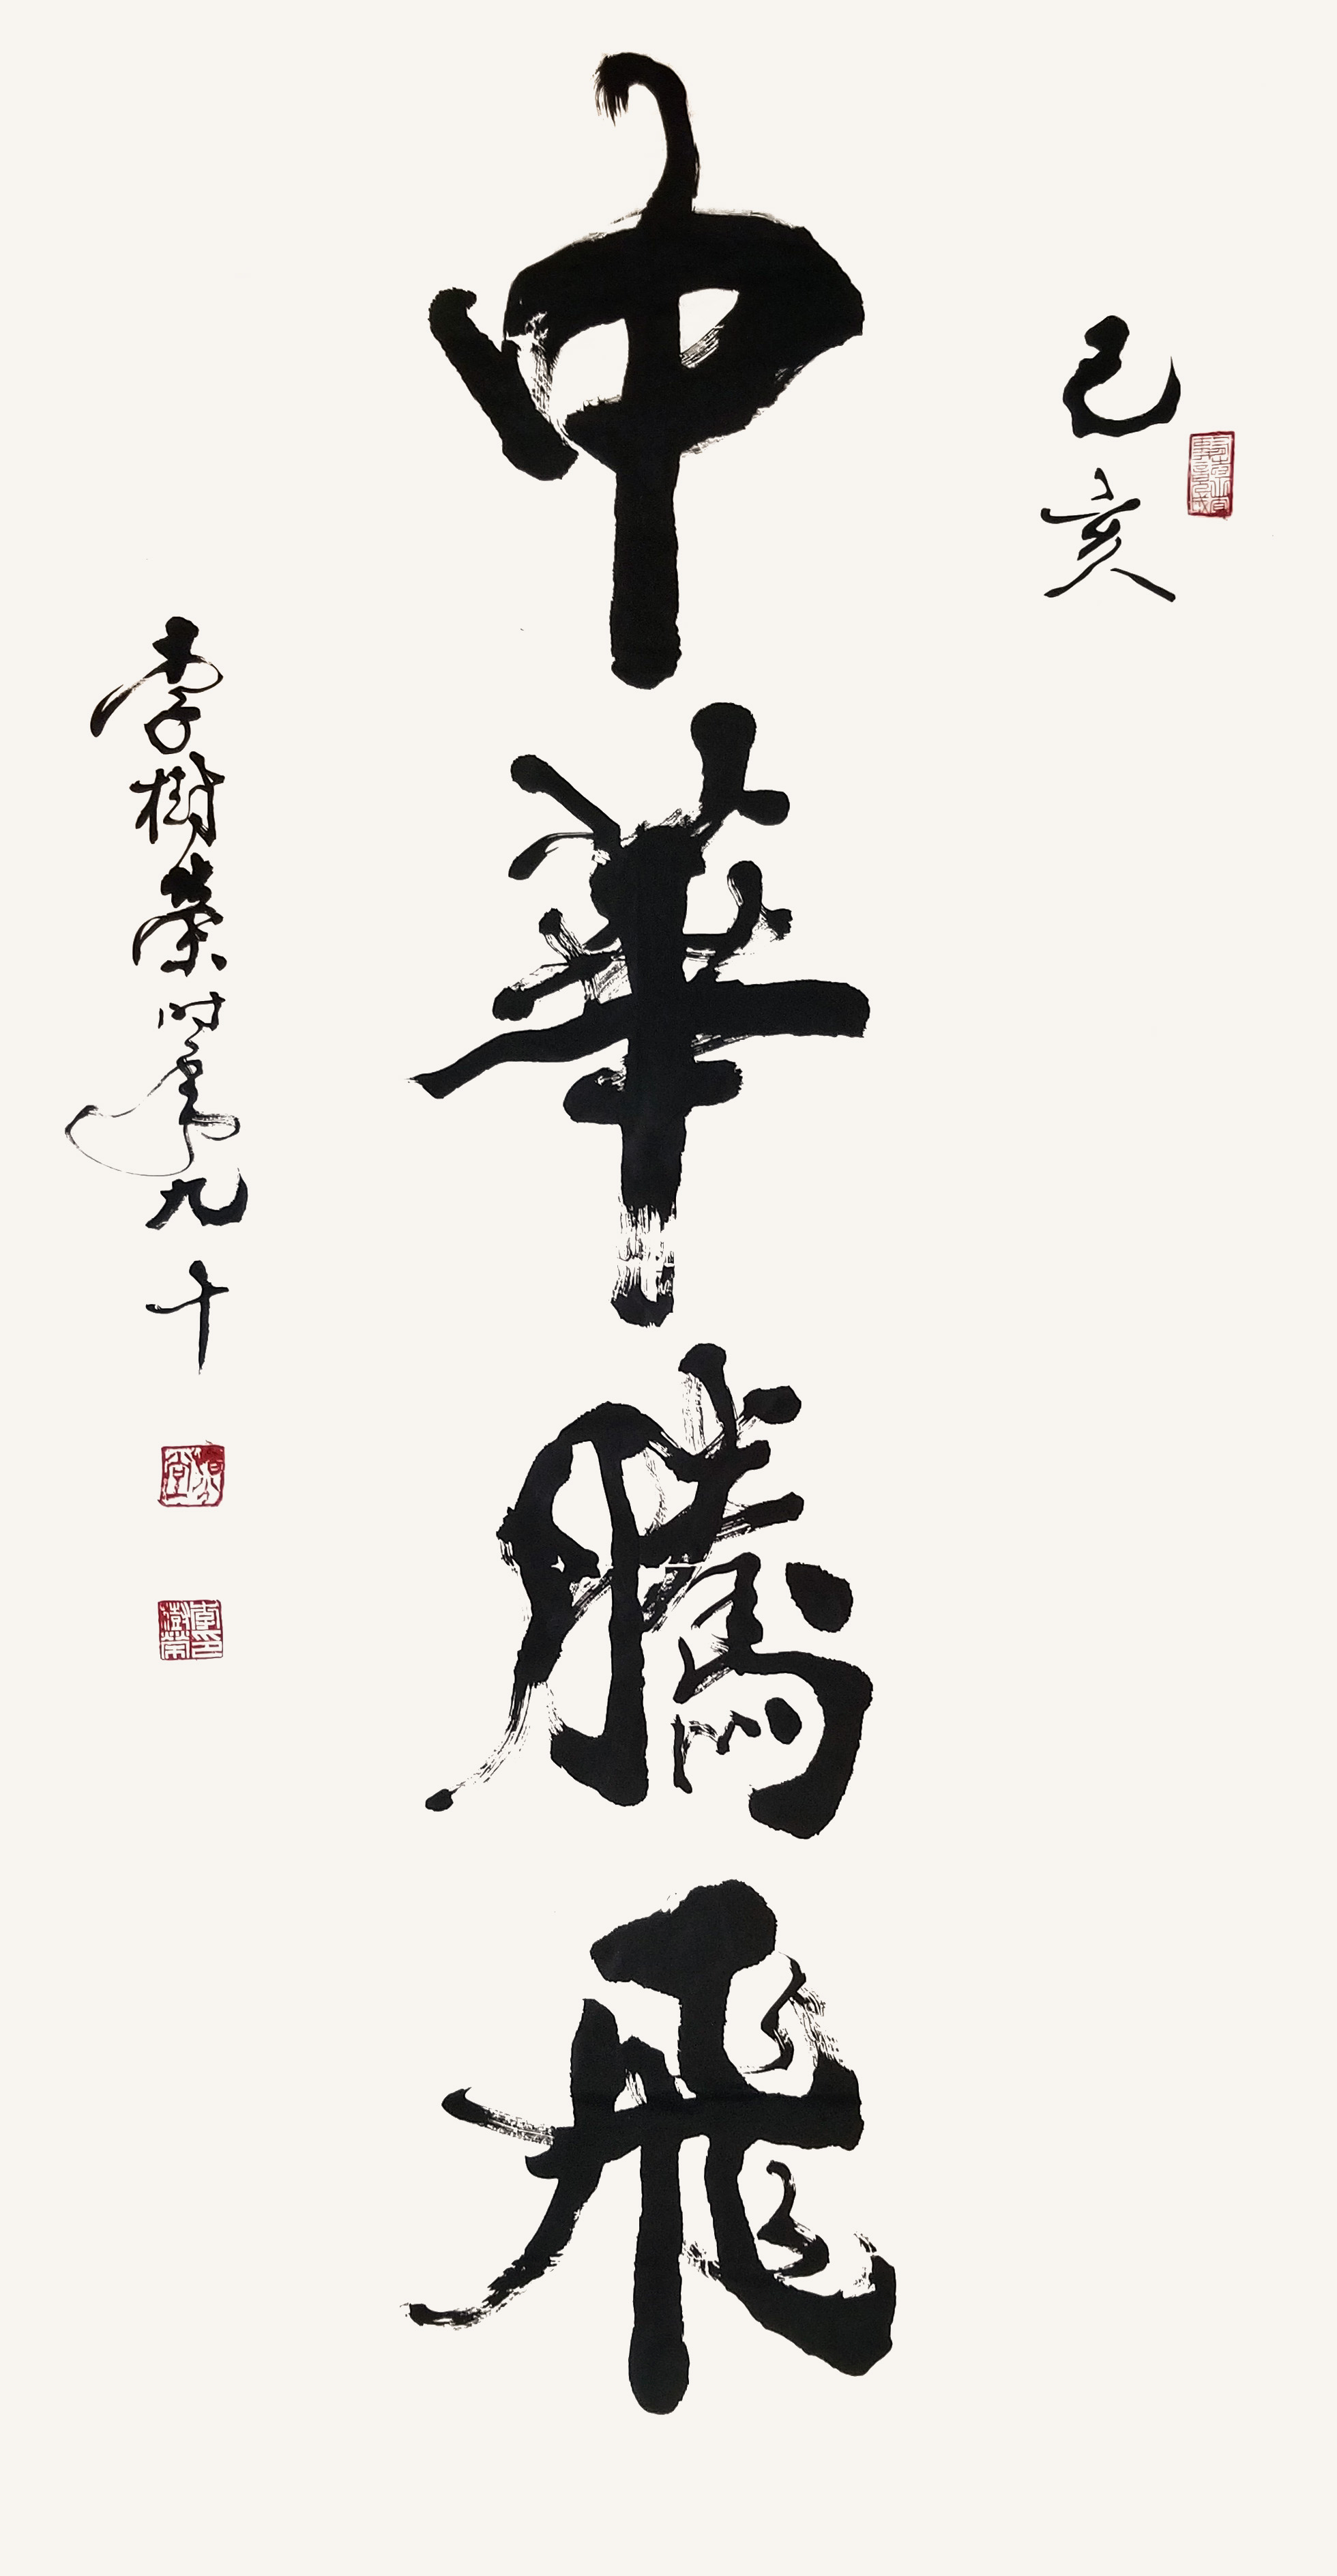 己亥
中華騰飛
李樹榮時年九十